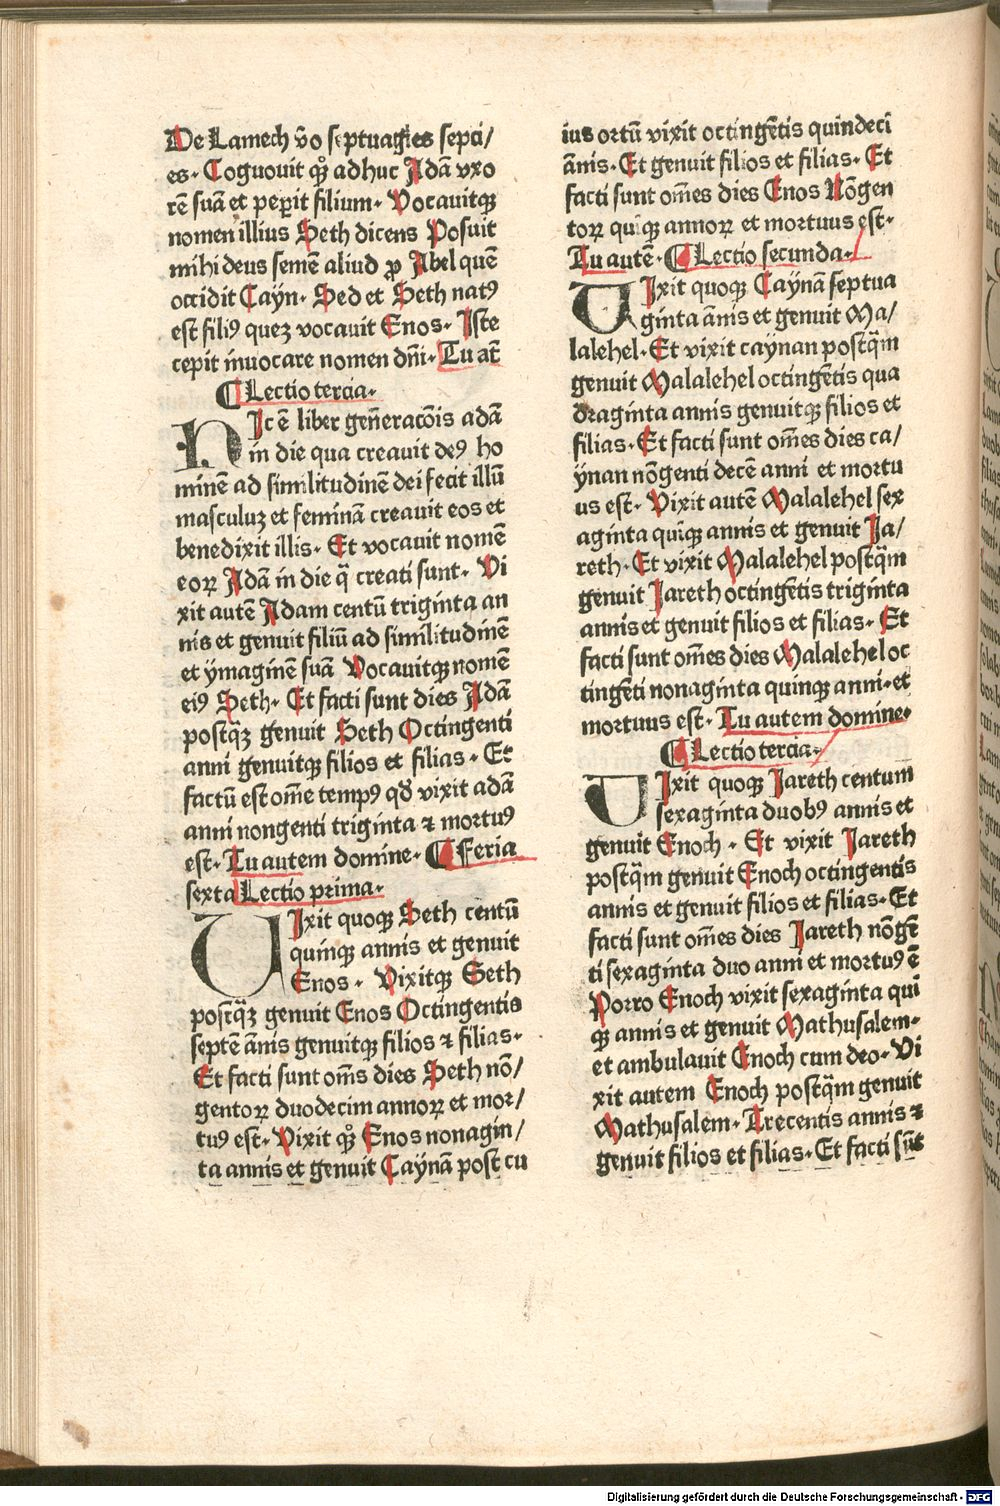 De Lamech v̄o septuagies septi/
es. Cognouit qꝫ adhuc Adā vxo
rē suā et peperit filium. Vocauitqꝫ
nomen illius Seth dicens Posuit
mihi deus semē aliud ꝓ Abel quē
occidit Cayn. Sed et Seth natꝰ
est filiꝰ quez vocauit Enos. Iste
cepit inuocare nomen dn̄i. Tu at̄
¶ Lectio tercia.
HIc ē liber gen̄eracōis adā
in die qua creauit deꝰ ho
minē ad similitudinē dei fecit illū
masculuz et feminā creauit eos et
benedixit illis. Et vocauit nomē
eoꝝ Adā in die q̄ creati sunt. Vi
xit autē Adam centū triginta an
nis et genuit filiū ad similitudinē
et ymaginē suā Vocauitqꝫ nomē
eiꝰ Seth. Et facti sunt dies Adā
postq̄ꝫ genuit Seth Octingenti
anni genuitqꝫ filios et filias. Et
factū est om̄e tempꝰ qd̄ vixit adā
anni nongenti triginta ⁊ mortuꝰ
est. Tu autem domine. ¶ Feria
sexta Lectio prima.
VIxit quoqꝫ Seth centū
quinqꝫ annis et genuit
Enos. Vixitqꝫ Seth
postq̄ꝫ genuit Enos Octingentis
septē ānis genuitqꝫ filios ⁊ filias.
Et facti sunt om̄s dies Seth nō/
gentoꝝ duodecim annoꝝ et mor/
tuꝰ est. Vixit qꝫ Enos nonagin/
ta annis et genuit Caynā post cu
ius ortū vixit octingētis quindeci
ānis. Et genuit filios et filias. Et
facti sunt om̄es dies Enos Nōgen
toꝝ quiqꝫ annoꝝ et mortuus est.
Tu autē. ¶ Lectio secunda.
VIxit quoqꝫ Caynā septua
ginta ānis et genuit Ma/
lalehel. Et vixit caynan postq̄m
genuit Malalehel octingētis qua
draginta annis genuitqꝫ filios et
filias. Et facti sunt om̄es dies ca/
ynan nōgenti decē anni et mortu
us est. Vixit autē Malalehel sex
aginta quīqꝫ annis et genuit Ja/
reth. Et vixit Malalehel postq̄m
genuit Jareth octingētis triginta
annis et genuit filios et filias. Et
facti sunt om̄es dies Malalehel oc
tingēti nonaginta quinqꝫ anni. et
mortuus est. Tu autem domine.
¶ Lectio tercia.
VIxit quoqꝫ Jareth centum
sexaginta duobꝰ annis et
genuit Enoch. Et vixit Jareth
postq̄m genuit Enoch octingentis
annis et genuit filios et filias. Et
facti sunt om̄es dies Jareth nōgē
ti sexaginta duo anni et mortuꝰ ē
Porro Enoch vixit sexaginta qui
qꝫ annis et genuit Mathusalem.
et ambulauit Enoch cum deo. Vi
xit autem Enoch postq̄m genuit
Mathusalem. Trecentis annis ⁊
genuit filios et filias. Et facti sūt
Digitalisierung gefördert durch die Deutsche Forschungsgemeinschaft - DFG